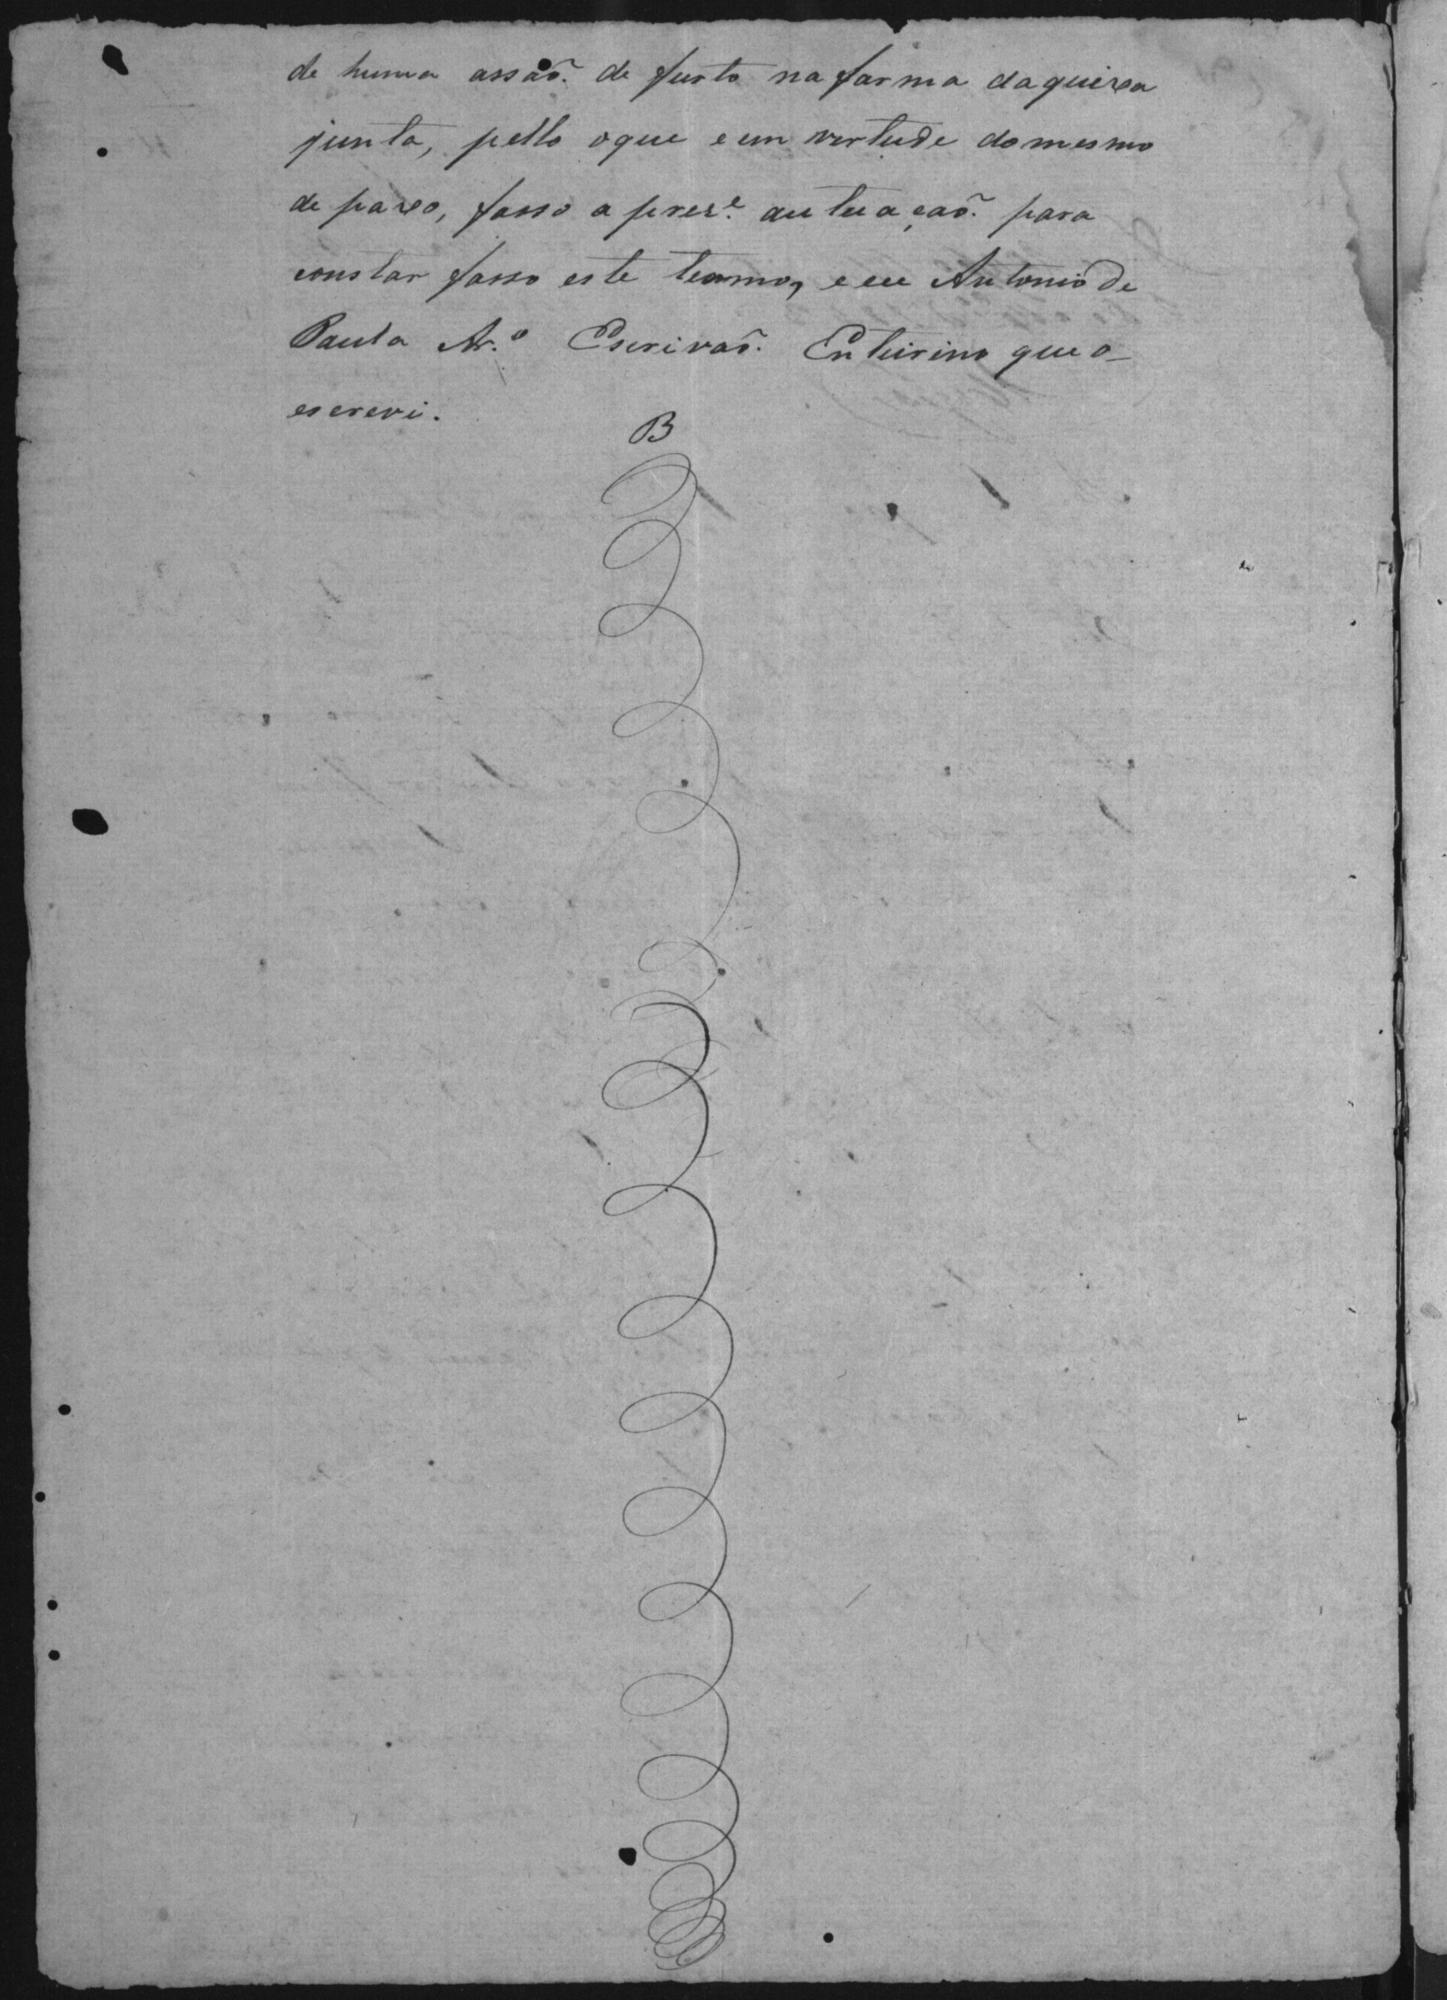 de huma assaõ. de furto na farma da queixa
junta, pello oque e em vertude do mesmo
de paxo, fasso a prez.e autuaçaõ. para
constar fasso este teromo, e eu Antonio de
Paula Ar.o Escrivaõ. Enteirino que o
escrevi.
B